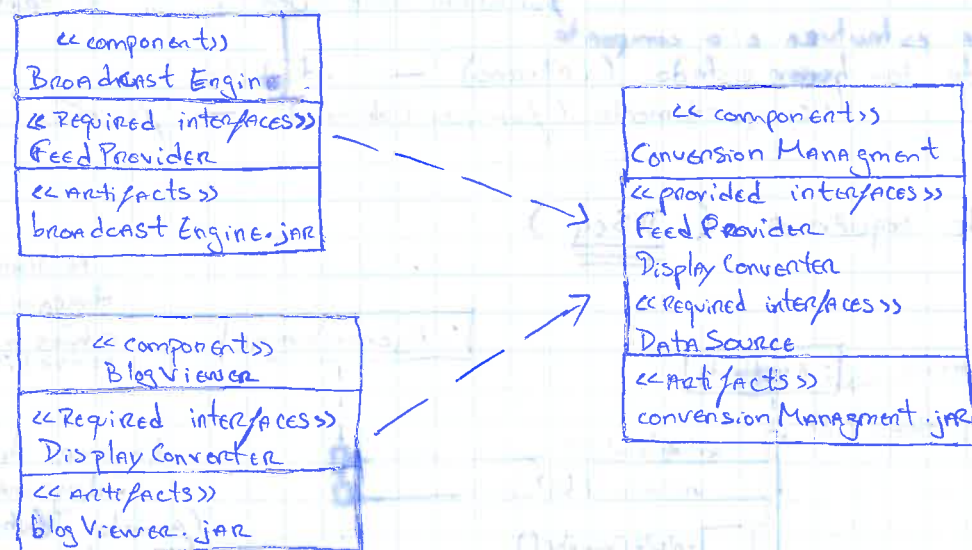 <<component>>
Broadcast Engine
<<Required interfaces>>
Feed Provider
<<Artifacts>>
broadcast Engine.jar
<<component>>
Blog Viewer
<<Required interfaces>>
Display Converter
<<Artifacts>>
blog Viewer.jar
<<component>>
Convension Managment
<<provided interfaces>>
Feed Provider
Display Converter
<<Required interfaces>>
Data Source
<<Artifacts>>
convension Managment.jar